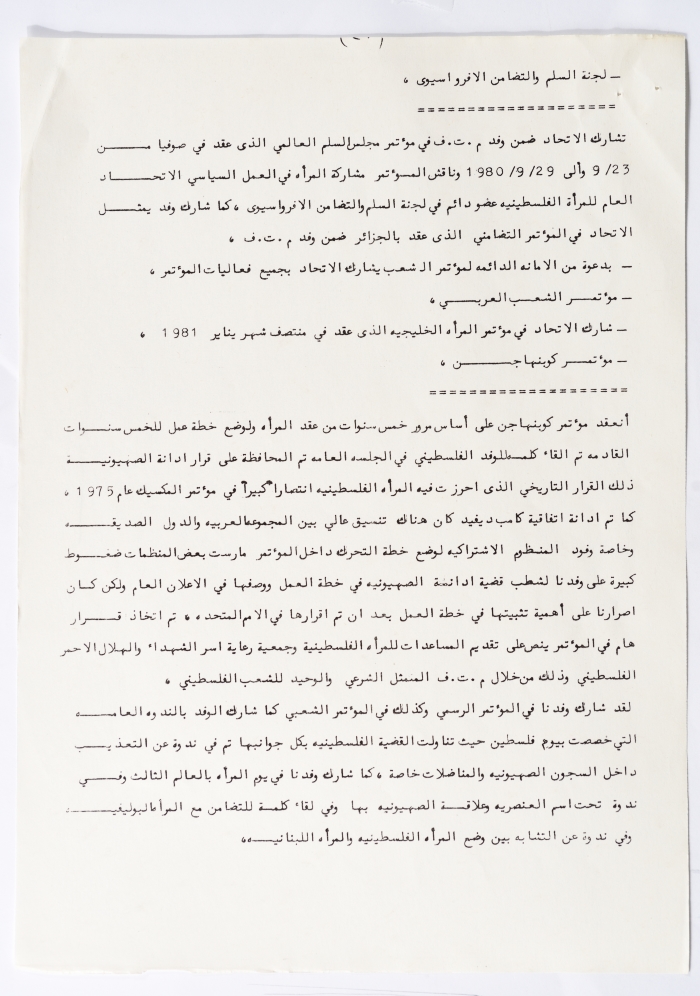 ـ لجنة السلم والتضامن الافرواسيوى ،
====================
تشارك الاتحاد ضمن وفد م.ت.ف في مؤتمر مجلس السلم العالمي الذى عقد في صوفيا مـــن
9/23 وألى 1980/9/29 وناقش المـؤتمر مشاركة المرأه في العمل السياسي الاتحـــاد
العام للمرأة الفلسطينيه عضو دائم في لجنة السلم والتضامن الافرواسيوى ، كما شارك وفد يمثــل
الاتحاد في المؤتمر التضامني الذى عقد بالجزائر ضمن وفد م.ت.ف ،
ـ بدعوة من الامانه الدائمه لمؤتمر الشعب يشارك الاتحاد بجميع فعاليات المؤتمر ،
ـ مؤتمـــر الشعـب العربـــي ،
ـ شارك الاتحاد في مؤتمر المرأه الخليجيه الذى عقد في منتصف شهر يناير 1981 ،
ـ مؤتمـــر كوبنهاجـــن ،
====================
أنعقد مؤتمر كوبنهاجن على أساس مرور خمس سنوات من عقد المرأه ولوضع خطة عمل للخمس سنـــوات
القادمه تم القاء كلمة للوفد الفلسطيني في الجلسه العامه تم المحافظة على قرار ادانة الصهيونيـــة
ذلك القرار التاريخي الذى احرزت فيه المرأه الفلسطينيه انتصارا كبيرا في مؤتمر المكسيك عام 1975 ،
كما تم ادانة اتفاقية كامب ديفيد كان هناك تنسيق عالي بين المجموعه العربيه والدول الصديقـــه
وخاصة وفود المنظوم الاشتراكيه لوضع خطة التحرك داخل المؤتمر مارست بعض المنظمات ضغـــوط
كبيرة على وفدنا لشطب قضية ادانة الصهيونيه في خطة العمل ووصفها في الاعلان العام ولكن كـان
اصرارنا على أهمية تثبيتها في خطة العمل بعد ان تم اقرارها في الامم المتحده ، تم اتخاذ قـــرار
هام في المؤتمر ينص على تقديم المساعدات للمرأه الفلسطينية وجمعية رعاية اسر الشهداء والهلال الاحمر
الفلسطيني وذلك من خلال م.ت.ف الممثل الشرعي والوحيد للشعب الفلسطيني ،
لقد شارك وفدنا في المؤتمر الرسمي وكذلك في المؤتمر الشعبي كما شارك الوفد بالندوه العامـــه
التي خصصت بيوم فلسطين حيث تناولت القضية الفلسطينيه بكل جوانبها تم في ندوة عن التعذيـــب
داخل السجون الصهيونيه والمناضلات خاصة ، كما شارك وفدنا في يوم المرأه بالعالم الثالث وفـــي
ندوة تحت اسم العنصريه وعلاقـــة الصهيونيه بها وفي لقاء كلمة للتضامن مع المرأه البوليفيـــه
وفي ندوة عن التشابه بين وضع المرأه الفلسطينيه والمرأه اللبنانيـــه،